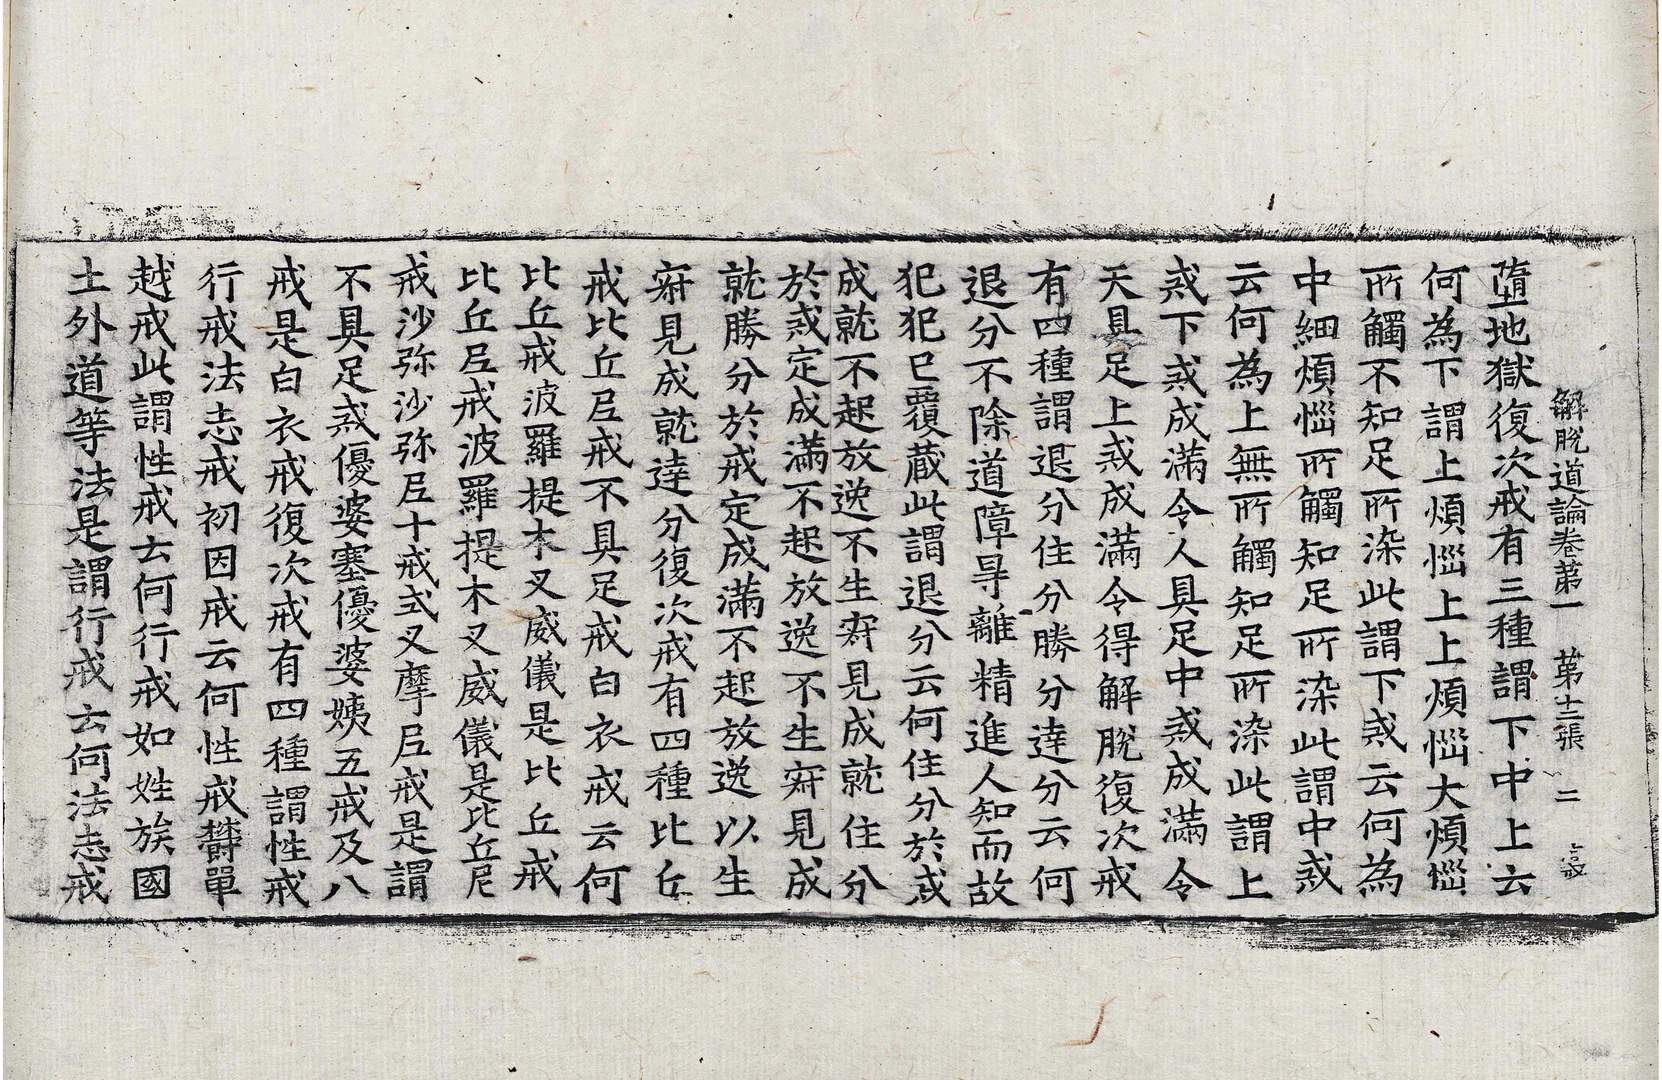 解脫道論卷第一 第十二張 二 㝡
墮地獄復次戒有三種謂下中上云
何為下謂上煩惱上上煩惱大煩惱
所觸不知足所染此謂下戒云何為
中細煩惱所觸知足所染此謂中戒
云何為上無所觸知足所染此謂上
戒下戒成滿令人具足中戒成滿令
天具足上戒成滿令得解脫復次戒
有四種謂退分住分勝分達分云何
退分不除道障㝵離精進人知而故
犯犯已覆藏此謂退分云何住分於戒
成就不起放逸不生寂見成就住分
於戒定成滿不起放逸不生寂見成
就勝分於戒定成滿不起放逸以生
寂見成就達分復次戒有四種比丘
戒比丘尼戒不具足戒白衣戒云何
比丘戒波羅提木叉威儀是比丘戒
比丘尼戒波羅提木叉威儀是比丘尼
戒沙弥沙弥尼十戒式叉摩尼戒是謂
不具足戒優婆塞優婆姨五戒及八
戒是白衣戒復次戒有四種謂性戒
行戒法志戒初因戒云何性戒欝單
越戒此謂性戒云何行戒如姓族國
土外道等法是謂行戒云何法志戒